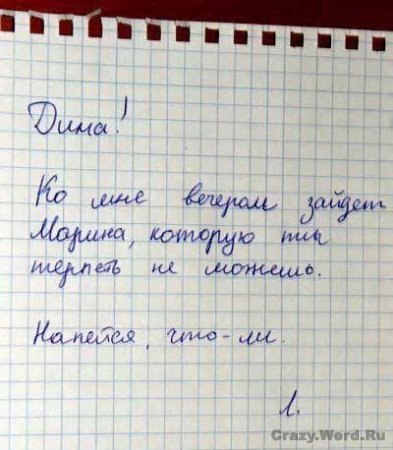 Дима!
Ко мне вечером зайдет
Марина, которую ты
терпеть не можешь.
Напейся, что-ли.
Л.
Crazy.Werd.Ru